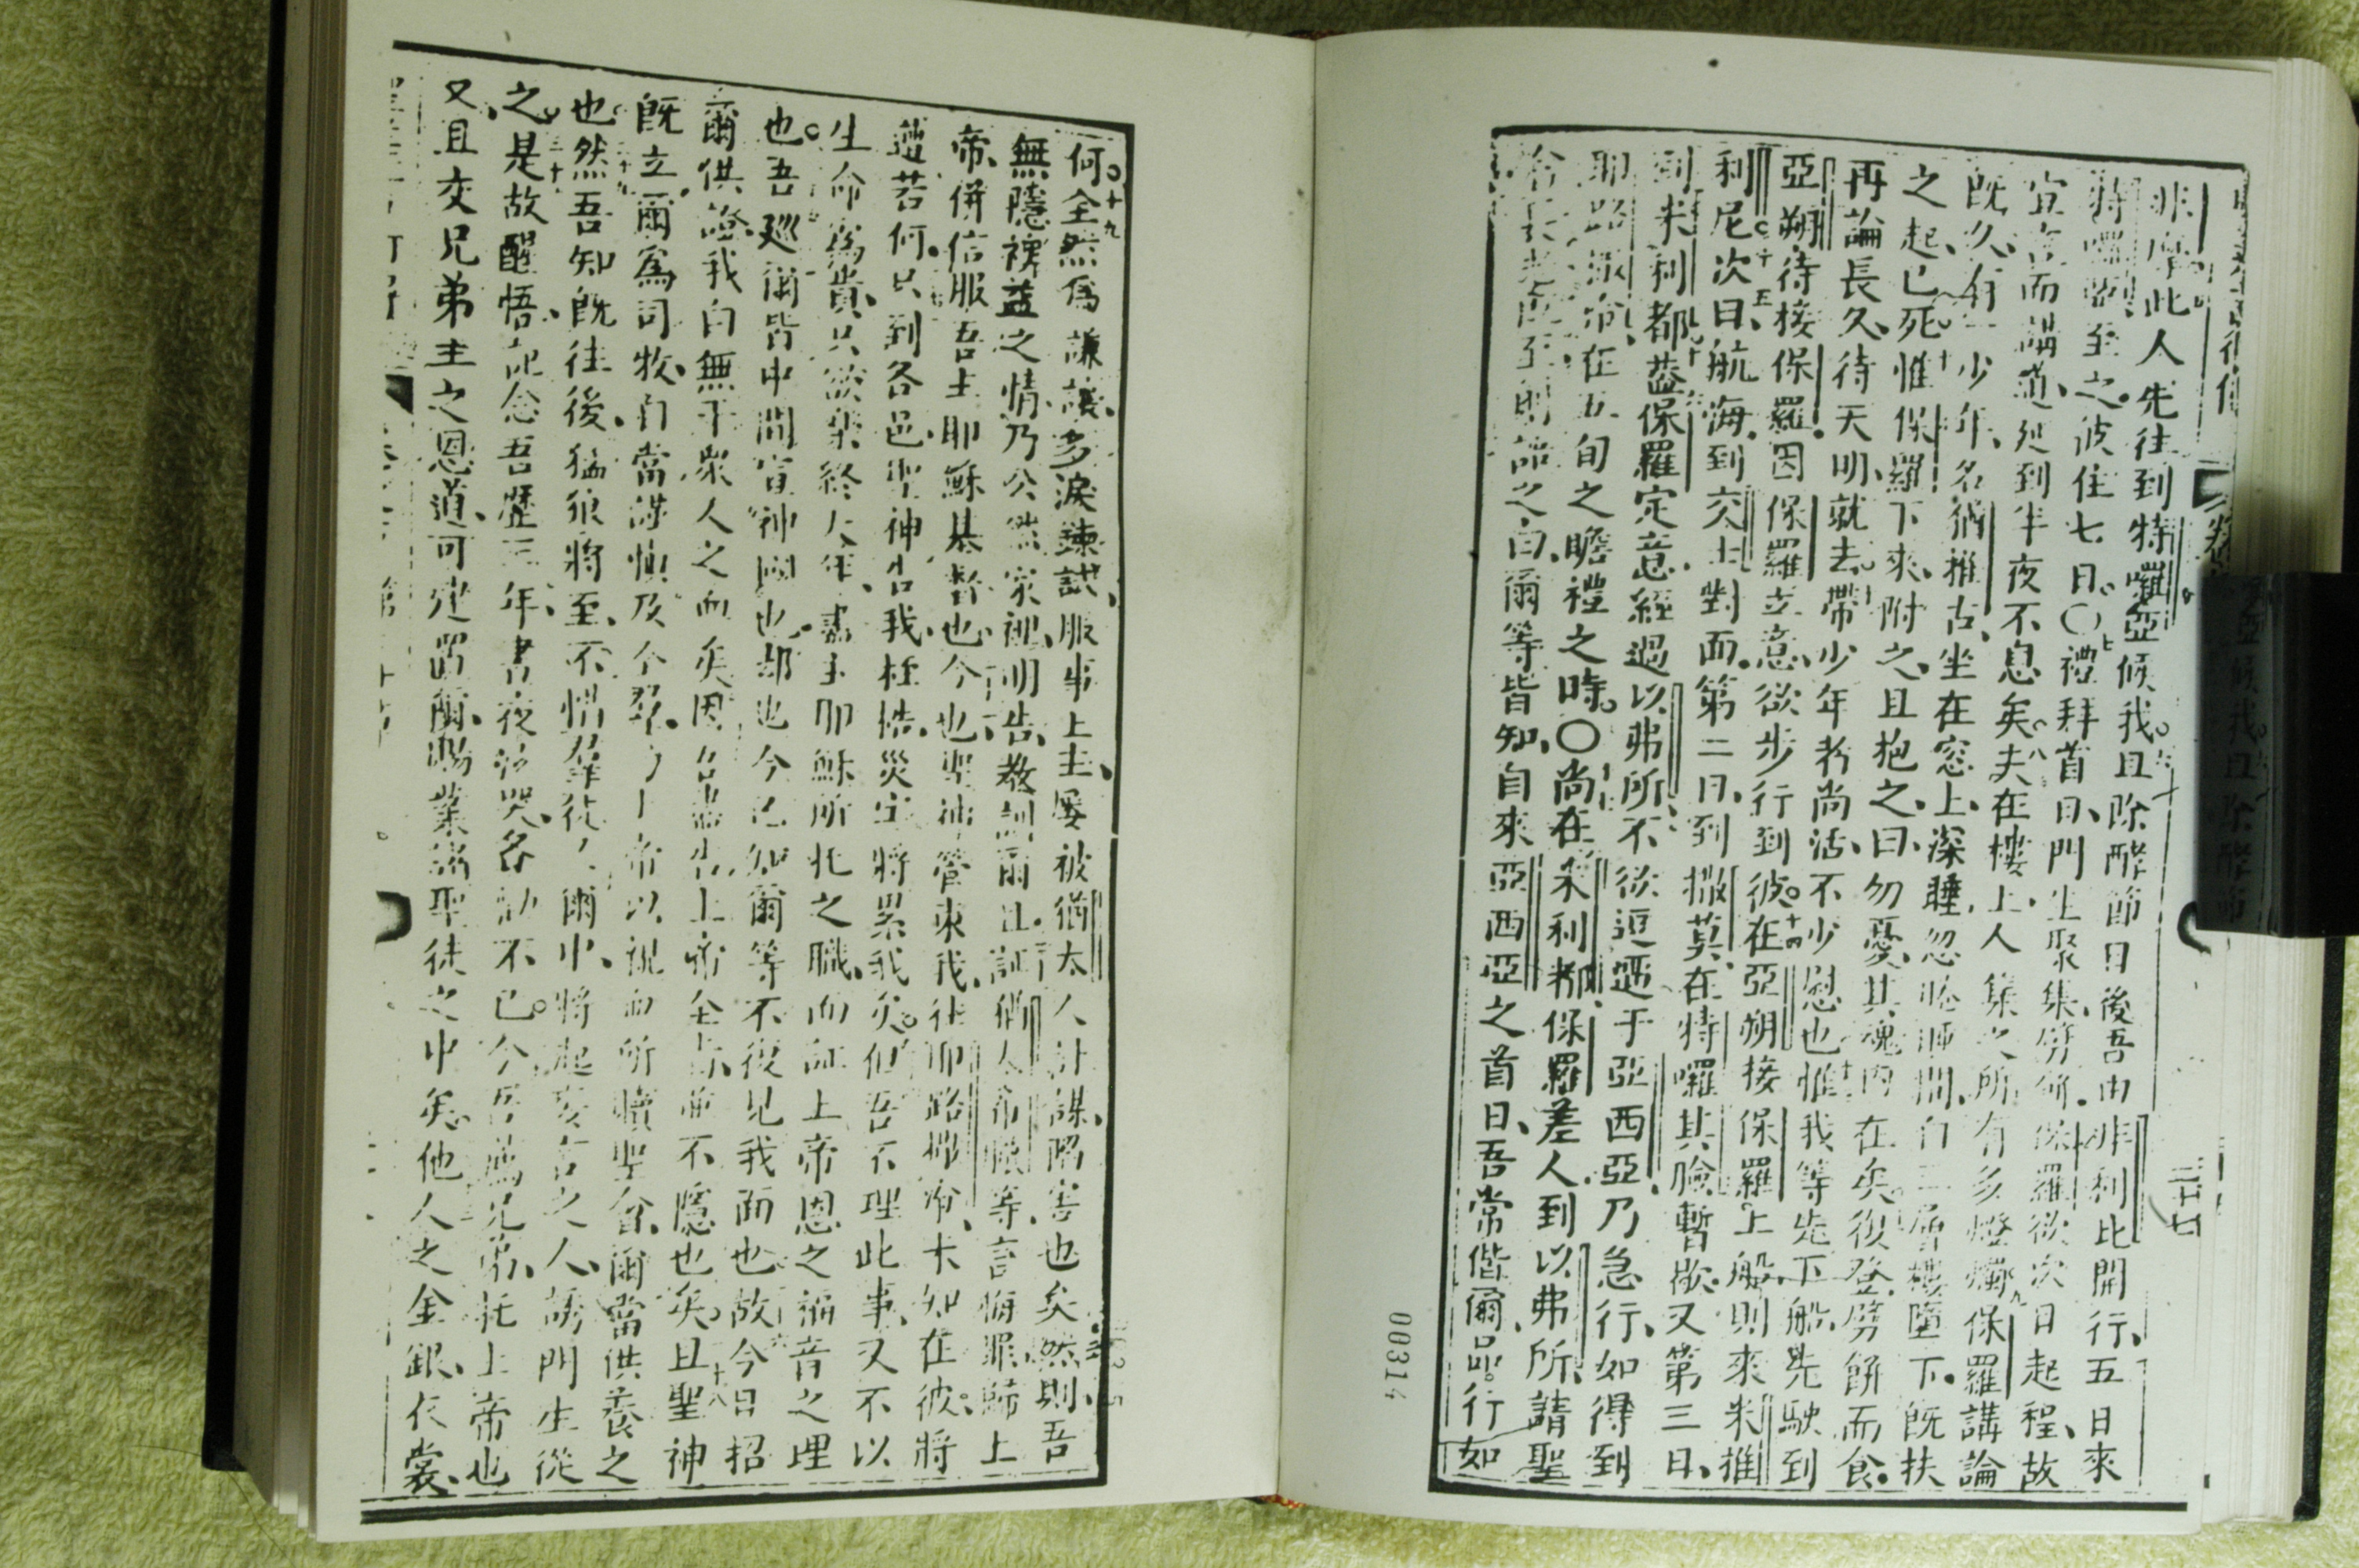 非屬此人先往到特囉亞候我且除酵節日後吾由非利比開行五日來
特囉亞至之彼住七日○禮拜首日門生聚集劈餅保羅欲次日起程故
宜言而講道延到半夜不息矣夫在樓上人集之所有多燈燭保羅講論
既久有一少年名猶推古坐在窓上深睡忽 三層樓墮下既扶
之起已死惟保羅下來附之且抱之曰勿憂其魂內在矣復登劈餅而食
再論長久待天明就去帶少年者尚活不少慰也惟我等先下船先駛到
亞朔待接保羅因保羅立意欲步行到彼在亞朔接保羅上船則來米推
利尼次日航海到 對面第二日到撒莫在特囉其險暫歇又第三日
到米利都葢保羅定意經過以弗所不欲逗遛于亞西亞乃急行如得到
耶路撒冷在五旬之瞻禮之時○尚在米利都保羅差人到以弗所請聖
會長老既至則語之曰爾等皆知自來亞西亞之首日吾常偕爾品行如
二十七
00314
何全然為謙讓多淚鍊試服事上主屢被猶太人計謀陷害也矣然則吾
無隱裨益之情乃公然家裡明告教訓爾且証猶人希臘等言悔罪歸上
帝併信服吾主耶穌基督也今也聖神管束我往耶路撒冷未知在彼將
遭若何只到各邑聖神告我枉梏災害將累我矣但吾不理此事又不以
生命為貴只欲樂終天年盡主耶穌所托之職而証上帝恩之福音之理
也吾巡爾皆中間宣神國也却也今已知爾等不復見我面也故今日招
爾供證我白無干眾人之血矣因 告上帝全旨而不隱也矣且聖神
既立爾為司牧自當謹慎及全群 上帝以親血所贖聖會爾當供養之
也然吾知既往後猛狼將至不惜群徒又爾中將起妄言之人誘門生從
之是故醒悟記念吾歷三年晝夜流哭各勸不已今吾薦兄弟托上帝也
又且交兄弟主之恩道可建置爾賜業偕聖徒之中矣他人之金銀衣裳